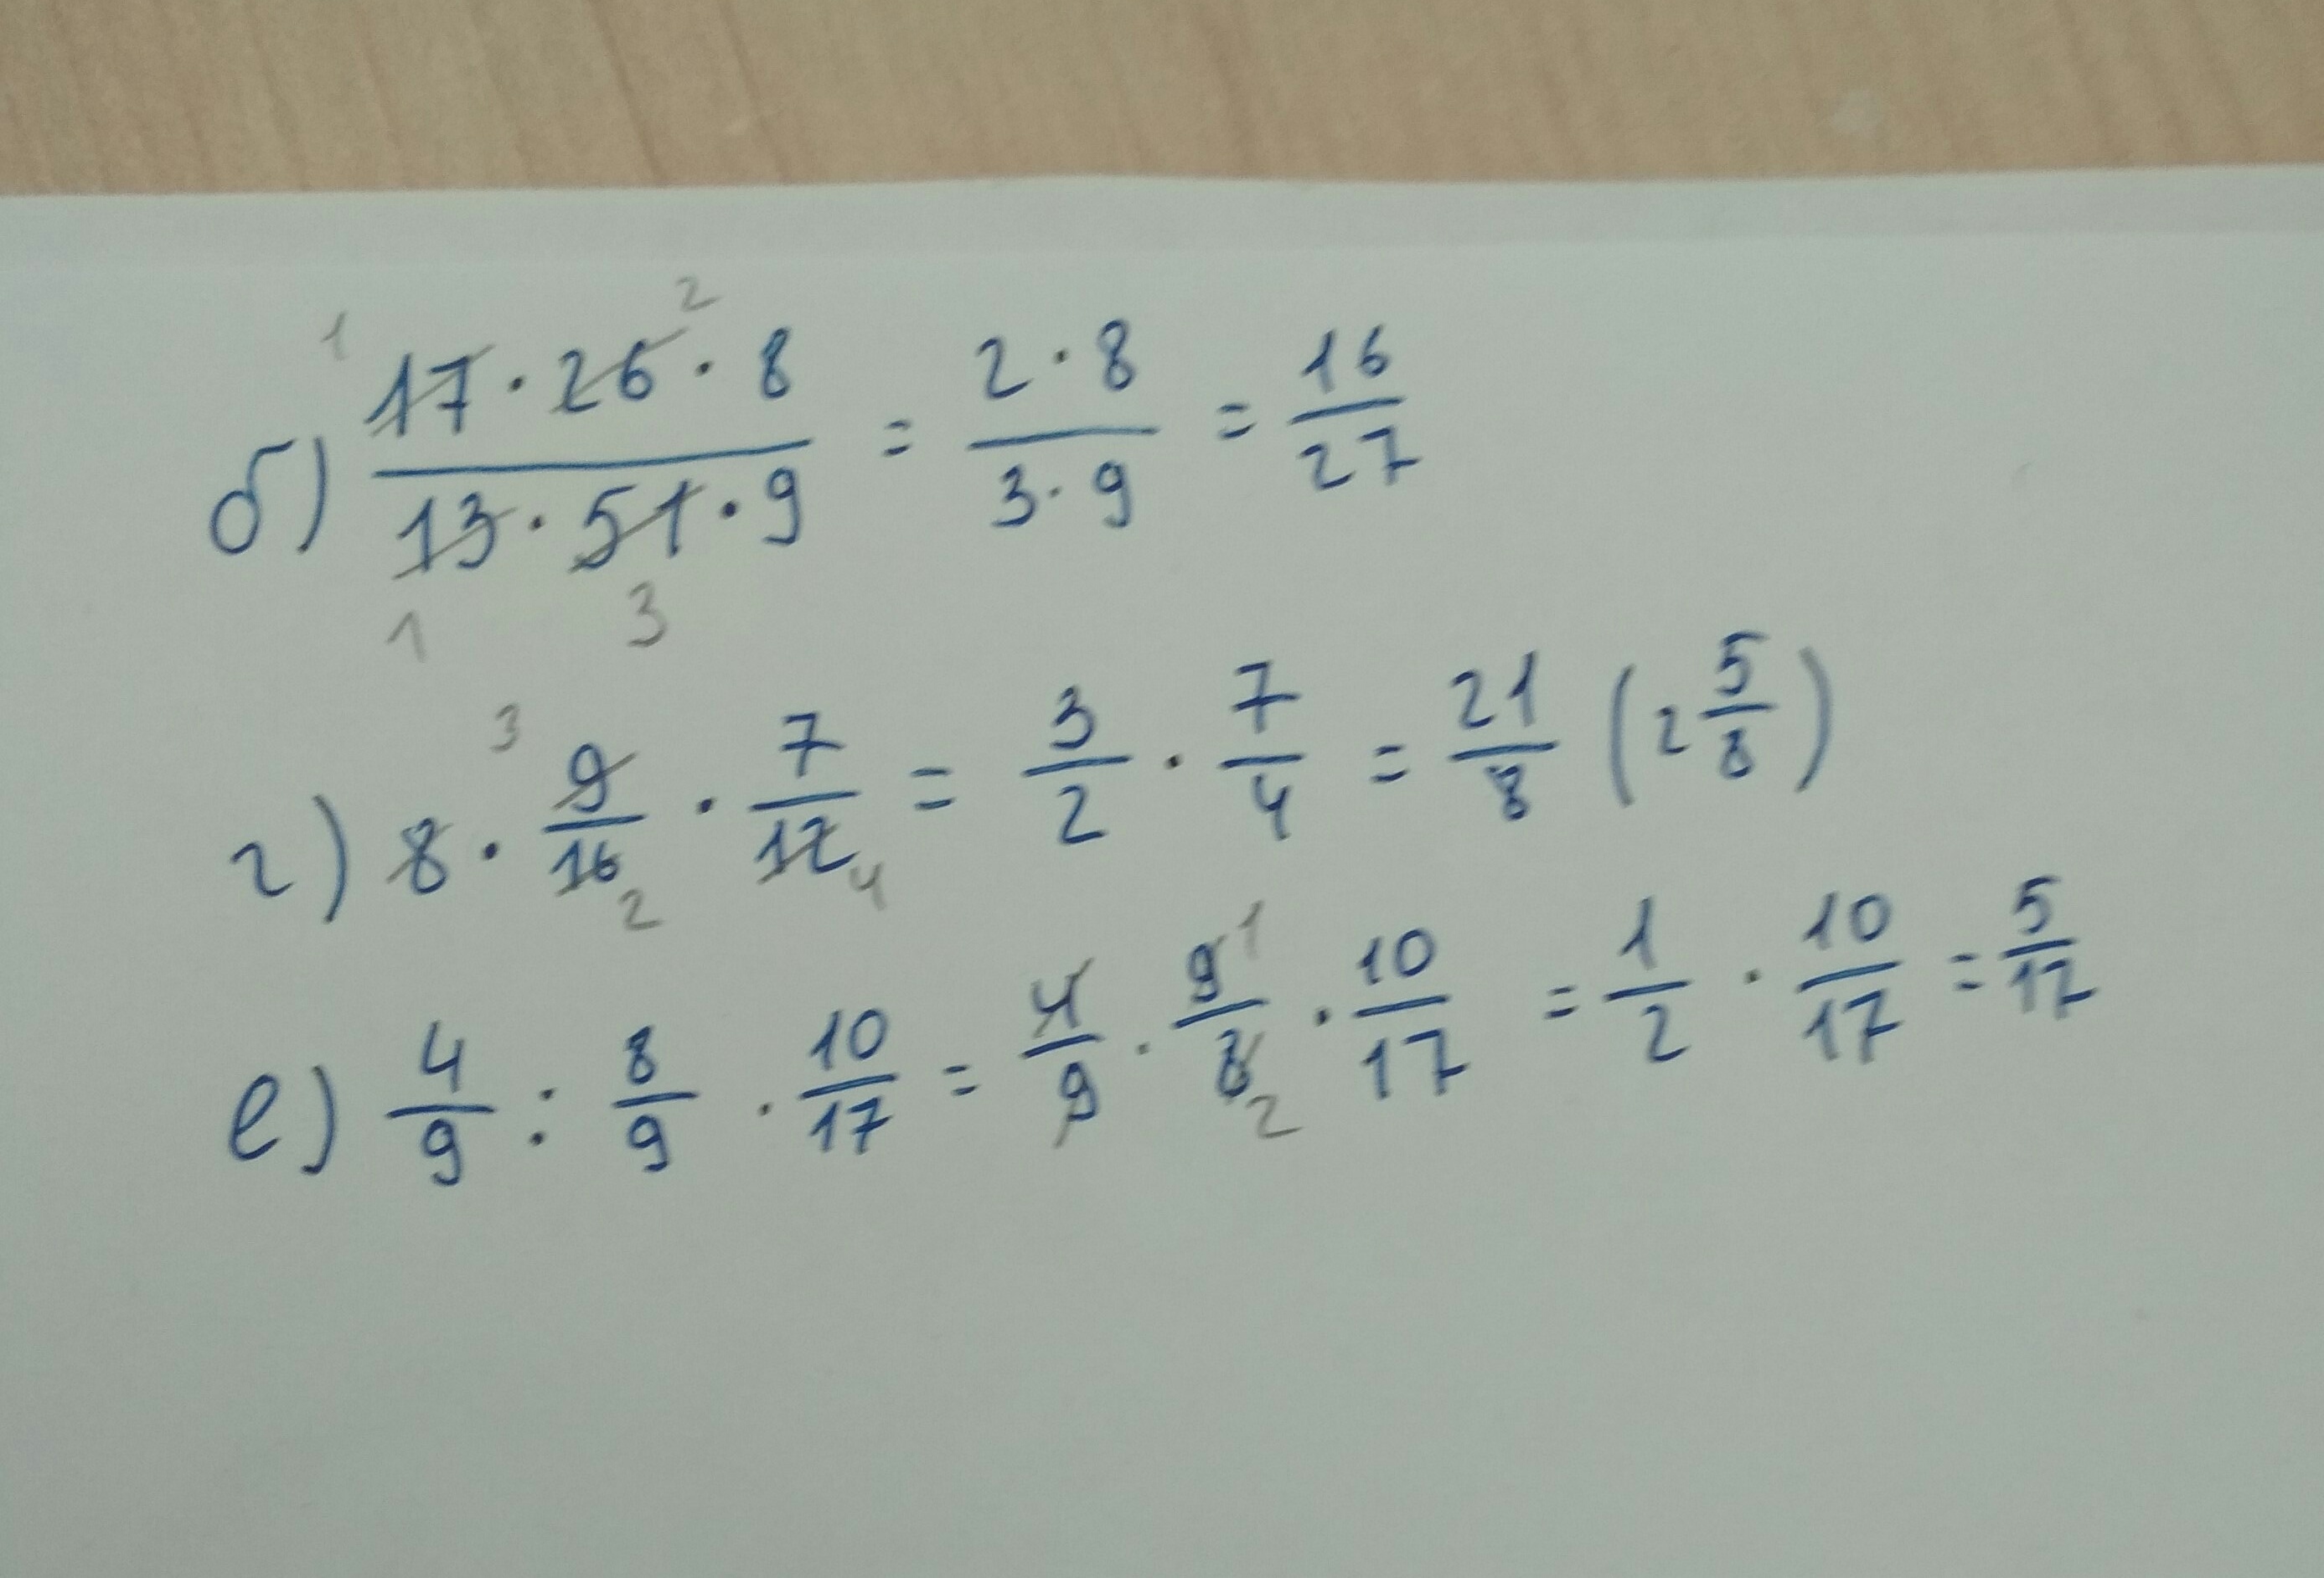 б) (17 · 26 · 8)/(13 · 51 · 9) = (2 · 8)/(3 · 9) = 16/27
г) 8 · 9/16 · 7/12 = 3/2 · 7/4 = 21/8 (2 5/8)
е) 4/9 : 8/9 · 10/17 = 4/9 · 9/8 · 10/17 = 1/2 · 10/17 = 5/17